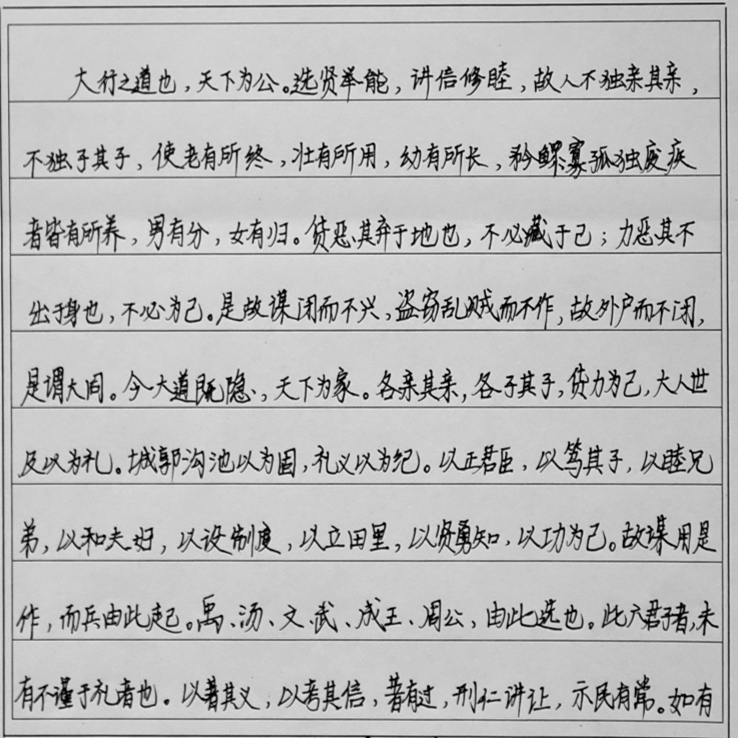 大行之道也，天下为公。选贤举能，讲信修睦，故人不独亲其亲，
不独子其子，使老有所终，壮有所用，幼有所长，矜鳏寡孤独废疾
者皆有所养，男有分，女有归。货恶其弃于地也，不必藏于己；力恶其不
出于身也，不必为己。是故谋闭而不兴，盗窃乱贼而不作，故外户而不闭，
是谓大同。今大道既隐，天下为家。各亲其亲，各子其子，货力为己，大人世
及以为礼。城郭沟池以为固，礼义以为纪。以正君臣，以笃其子，以睦兄
弟，以和夫妇，以设制度，以立田里，以贤勇知，以功为己。故谋用是
作，而兵由此起。禹、汤、文、武、成王、周公，由此选也。此六君子者，未
有不谨于礼者也。以著其义，以考其信，著有过，刑仁讲让，示民有常。如有